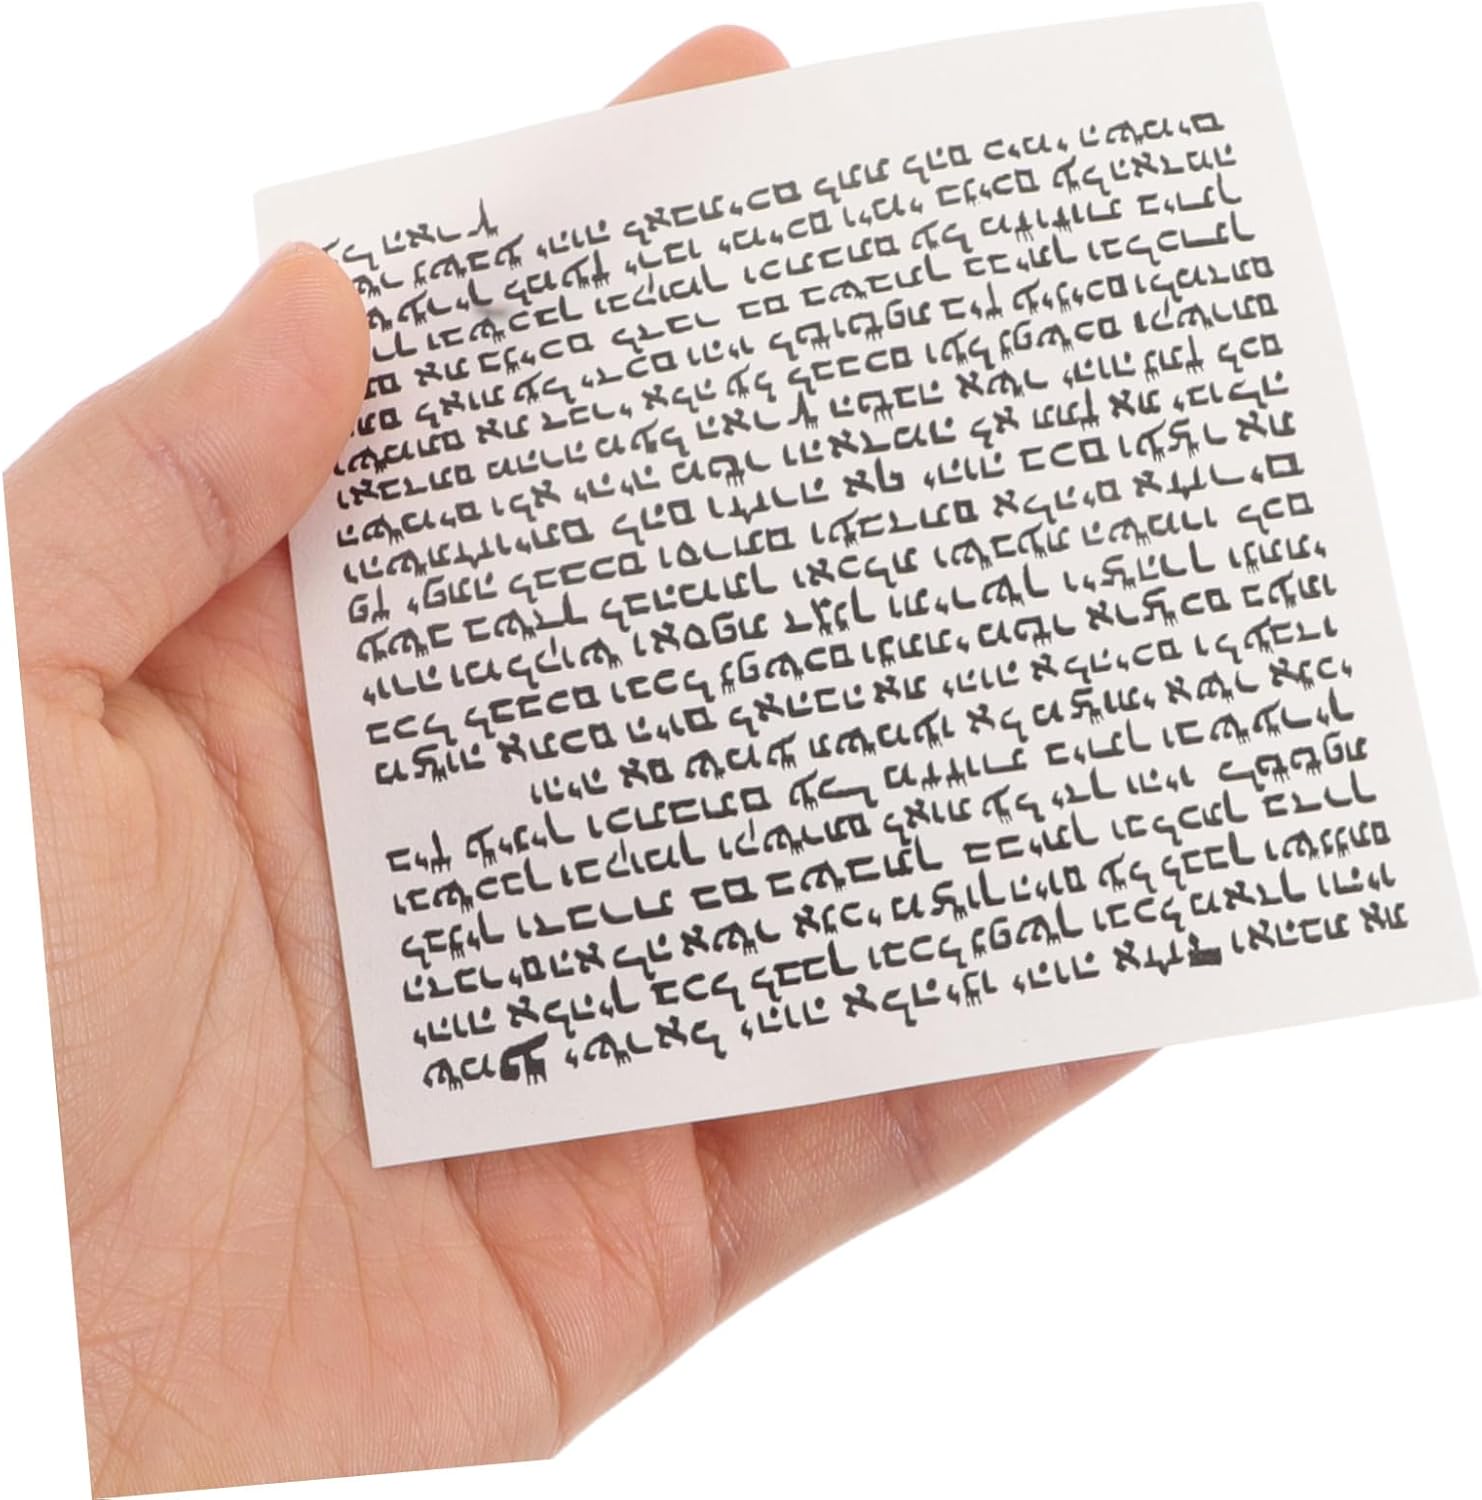 שמע ישראל יהוה אלהינו יהוה אחד ואהבת את
יהוה אלהיך בכל לבבך ובכל נפשך ובכל מאדך והיו
הדברים האלה אשר אנכי מצוך היום על לבבך ושננתם
לבניך ודברת בם בשבתך בביתך ובלכתך בדרך
ובשכבך ובקומך וקשרתם לאות על ידך והיו לטטפת
בין עיניך וכתבתם על מזזות ביתך ובשעריך
והיה אם שמע תשמעו אל מצותי אשר אנכי
מצוה אתכם היום לאהבה את יהוה אלהיכם ולעבדו
בכל לבבכם ובכל נפשכם ונתתי מטר ארצכם בעתו
יורה ומלקוש ואספת דגנך ותירשך ויצהרך ונתתי
עשב בשדך לבהמתך ואכלת ושבעת השמרו לכם
פן יפתה לבבכם וסרתם ועבדתם אלהים אחרים
והשתחויתם להם וחרה אף יהוה בכם ועצר את
השמים ולא יהיה מטר והאדמה לא תתן את יבולה
ואבדתם מהרה מעל הארץ הטבה אשר יהוה נתן לכם
ושמתם את דברי אלה על לבבכם ועל נפשכם וקשרתם
אתם לאות על ידכם והיו לטוטפת בין עיניכם ולמדתם
אתם את בניכם לדבר בם בשבתך בביתך ובלכתך
ובשכבך ובקומך וכתבתם על מזוזות ביתך
למען ירבו ימיכם וימי בניכם על האדמה
אשר נשבע יהוה לאבתיכם לתת להם כימי השמים
על הארץ